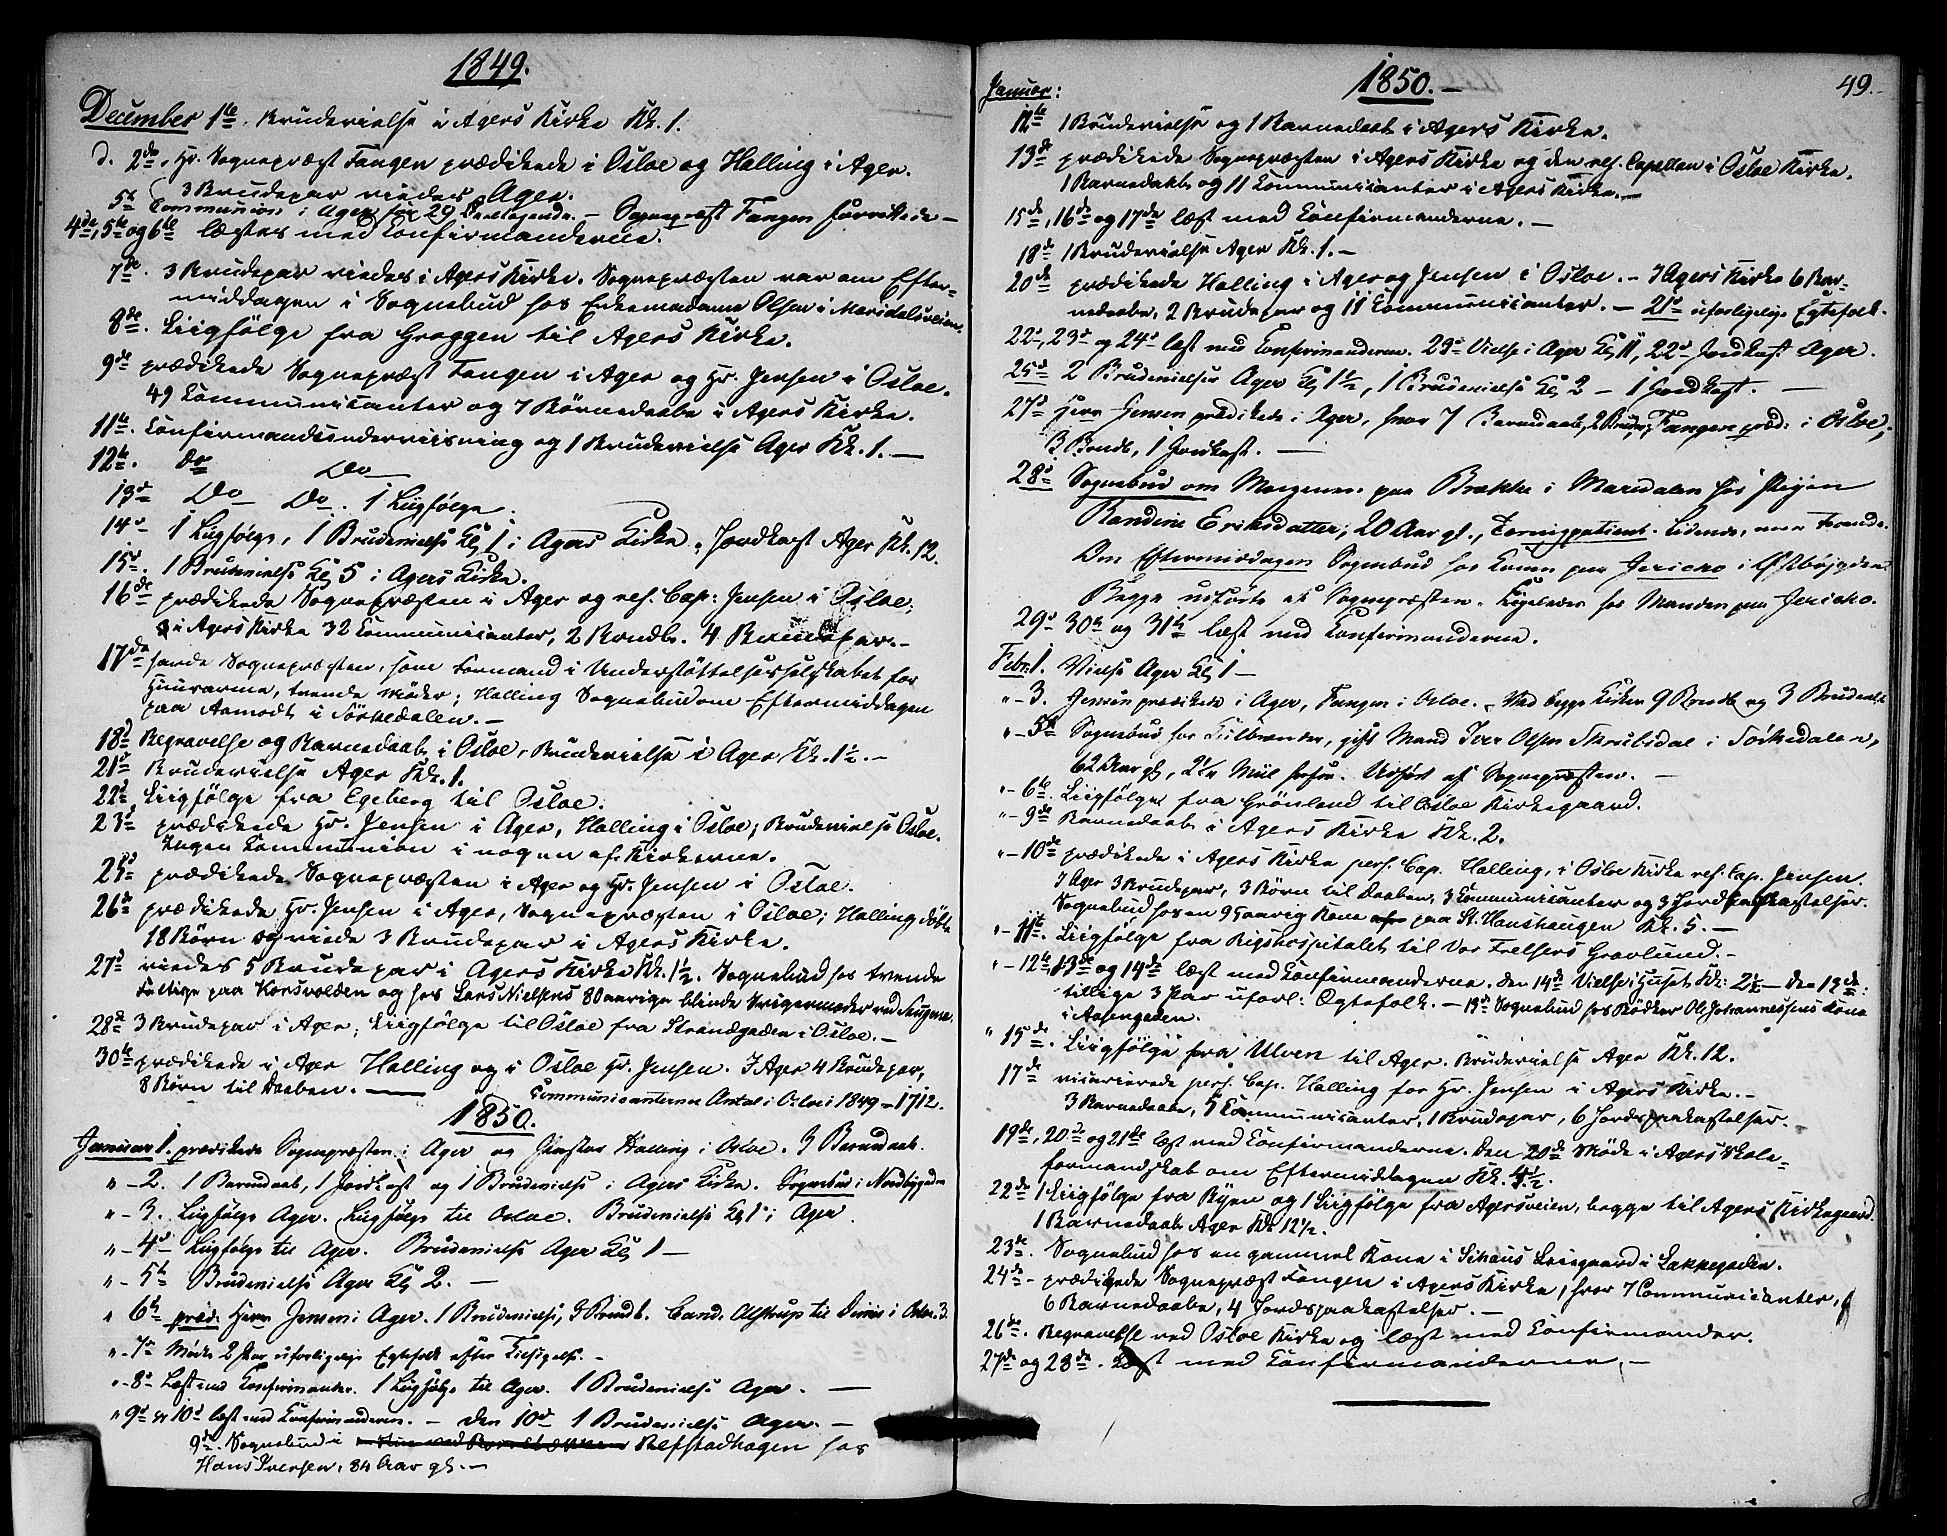 1849.
December 1te. Brudevielse i Agers Kirke Kl. 1.
d. 2de. Hr. Sognepræst Fangen prædikede i Osloe og Halling i Ager.
3 Brudepar viedes Ager.
5te Communion i Ager for 29 Deeltagende. – Sognepræst Fangen forrettede –
4de, 5te og 6te læstes med Confirmanderne.
7de. 3 Brudepar viedes i Agers Kirke. Sognepræsten var om Efter-
middagen i Sognebud hos Enkemadame Olsen i Maridalsveien.
8de. Liigfölge fra Groggen til Agers Kirke.
9de prædikede Sognepræst Fangen i Ager og Hr. Jensen i Osloe.
49 Communicanter og 7 Börnedaabe i Agers Kirke.
11te. Confirmandundervisning og 1 Brudevielse Ager Kl. 1. –
12te. do Do
13d Do Do. 1 Liigfølge.
14d 1 Liigfølge, 1 Brudevielse Kl 1 i Agers Kirke. Jordkast Ager Kl. 12.
15d. 1 Brudevielse Kl 5 i Agers Kirke.
16de prædikede Sognepræsten i Ager og res. Cap: Jensen i Osloe;
i Agers Kirke 32 Communicanter, 2 Barndb. 4 Brudepar. –
17de havde Sognepræsten, som Formand i Understöttelsesselskabet for
Huusarme, tvende Möder; Halling Sognebud om Eftermiddagen
paa Aamodt i Sörkedalen. –
18d Begravelse og Barnedaab i Osloe, Brudevielse i Ager Kl. 1½. –
21d Brudevielse Ager Kl. 1.
22d Liigfölge fra Egeberg til Osloe.
23d prædikede Hr. Jensen i Ager, Halling i Osloe; Brudevielse Osloe.
Ingen Communion i nogen af Kirkerne.
25d prædikede Sognepræsten i Ager og Hr. Jensen i Osloe.
26de prædikede Hr. Jensen i Ager, Sognepræsten i Osloe; Halling döbte
18 Börn og viede 3 Brudepar i Agers Kirke.
27d viedes 5 Brudepar i Agers Kirke Kl. 1½. Sognebud hos tvende
Fattige paa Korsvolden og hos Lars Nielsens 80 aarige blinde Svigermoder ved
28de 3 Brudepar i Ager; Liigfölge til Osloe fra Strandgaden i Osloe. –
30te prædikede i Ager Halling og i Osloe Hr. Jensen. I Ager 4 Brudepar,
8 Börn til Daaben. – Communicanternes Antal i Osloe i 1849 = 1712.
1850.
Januar 1. prædikede Sognepræsten i Ager og Halling i Osloe. 3 Barnedaab.
" – 2. 1 Barnedaab, 1 Jordkast og 1 Brudevielse i Agers Kirke. Sognebud i
" – 3. Liigfølge Ager. Liigfølge til Osloe. Brudevielse Kl 1 i Ager
" – 4d Liigfølge til Ager. Brudevielse Ager Kl 1 –
" – 5te Brudevielse Ager Kl 2. –
" – 6te præd: Herr Jensen i Ager. 1 Brudevielse, 3 Barndb. Cand. Alstrup til
" – 7d Møde 2 Par uforligelige Egtefolk efter Tilsigelse. –
" – 8d Læst med Confirmanter. 1 Liigfølge til Ager. 1 Brudevielse Ager. –
" 9d og 10d læst med Confirmanderne. – Den 10d 1 Brudevielse Ager. –
9de. Sognebud i Refstadhagen hos
Hans Iversen, 84 Aar gl. –
49.
1850. –
Januar:
12te 1 Brudevielse og 1 Barnedaab i Agers Kirke.
13de prædikede Sognepræsten i Agers Kirke og den res. Capellan i Osloe Kirke.
1 Barnedaab og 11 Communicanter i Agers Kirke. –
15de, 16de og 17de læst med Confirmanderne. –
18de 1 Brudevielse Ager Kl. 1. –
20de prædikede Halling i Ager og Jensen i Osloe. – I Agers Kirke 6 Bar-
nedaabe, 2 Brudepar og 11 Communicanter. – 21d uforligelige Egtefolk.
22d, 23d og 24d læst med Confirmanderne. 23d Vielse i Ager Kl 11, 22d Jordkast Ager.
25d 2 Brudevielser Ager Kl 1½, 1 Brudevielse Kl 2 – 1 Jordkast. –
27d Herr Jensen prædikede i Ager, hvor 7 Barnedaab, 2 Brudev, Fangen præd: i Osloe,
3 Barndb, 1 Jordkast. –
28d Sognebud om Morgenen paa Brække i Maridalen hos Pigen
Randine Eriksdatter, 20 Aar gl.,
Om Eftermiddagen Sognebud hos Konen paa Jericho i Østbøigden.
Begge udførte af Sognepræsten. Ligeledes hos Manden paa Jericho.
29d 30te og 31te læst med Confirmanderne.
Febr: 1. Vielse Ager Kl 1 –
" – 3. Jensen prædikede i Ager, Fangen i Osloe. Ved begge Kirker 9 Barndb og 3 Brudevielser
" – 5te Sognebud hos gift Mand Iver Olsen Skrubsdal i Sörkedalen,
62 Aar gl, 2¼ Miil herfra. Udført af Sognepræsten. –
" – 6te. Liigfölge fra Grönland til Osloe Kirkegaard.
" – 9de Barnedaab i Agers Kirke Kl. 2.
" – 10de prædikede i Agers Kirke pers. Cap. Halling, i Osloe Kirke res. Cap. Jensen.
I Ager 3 Brudepar, 3 Börn til Daaben, 3 Communicanter og 3 Jordspaakastelser.
Sognebud hos en 95 aarig Kone paa St. Hanshaugen Kl. 5. –
" – 11te. Liigfölge fra Rigshospitalet til Vor Frelsers Gravlund. –
" – 12te 13de og 14de læst med Confirmanderne. Den 14de Vielse i Huset Kl: 2½ – Den 13de:
tillige 3 Par uforl: Ægtefolk. – 13de Sognebud hos Bödker Ole Johannessens Kone
i Aasengaden.
" 15de. Liigfölge fra Ulven til Ager. Brudevielse Ager Kl. 12.
17de vicarierede pers. Cap. Halling for Hr. Jensen i Agers Kirke. –
3 Barnedaabe, 5 Communicanter, 1 Brudepar, 6 Jordspaakastelser. –
19de, 20de og 21de læst med Confirmanderne. Den 20de Möde i Agers Skole-
formandskab om Eftermiddagen Kl. 4½.
22de 1 Liigfölge fra Ryen og 1 Liigfölge fra Agersveien, begge til Agers Kirkegaard.
1 Barnedaab Ager Kl 12½.
23de. Sognebud hos en gammel Kone i Schous Leiegaard i Lakkegaden.
24de – prædikede Sognepræst Fangen i Agers Kirke, hvor 7 Communicanter,
6 Barnedaabe, 4 Jordspaakastelser. –
26de. Begravelse ved Osloe Kirke og læst med Confirmander.
27de og 28de. Læst med Confirmanderne. –